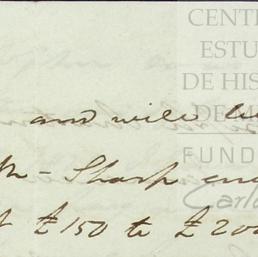 CENTR
ESTU
DE HIS
DE M
FUND
Carlo
and will be
Sharp and
£150 to £200